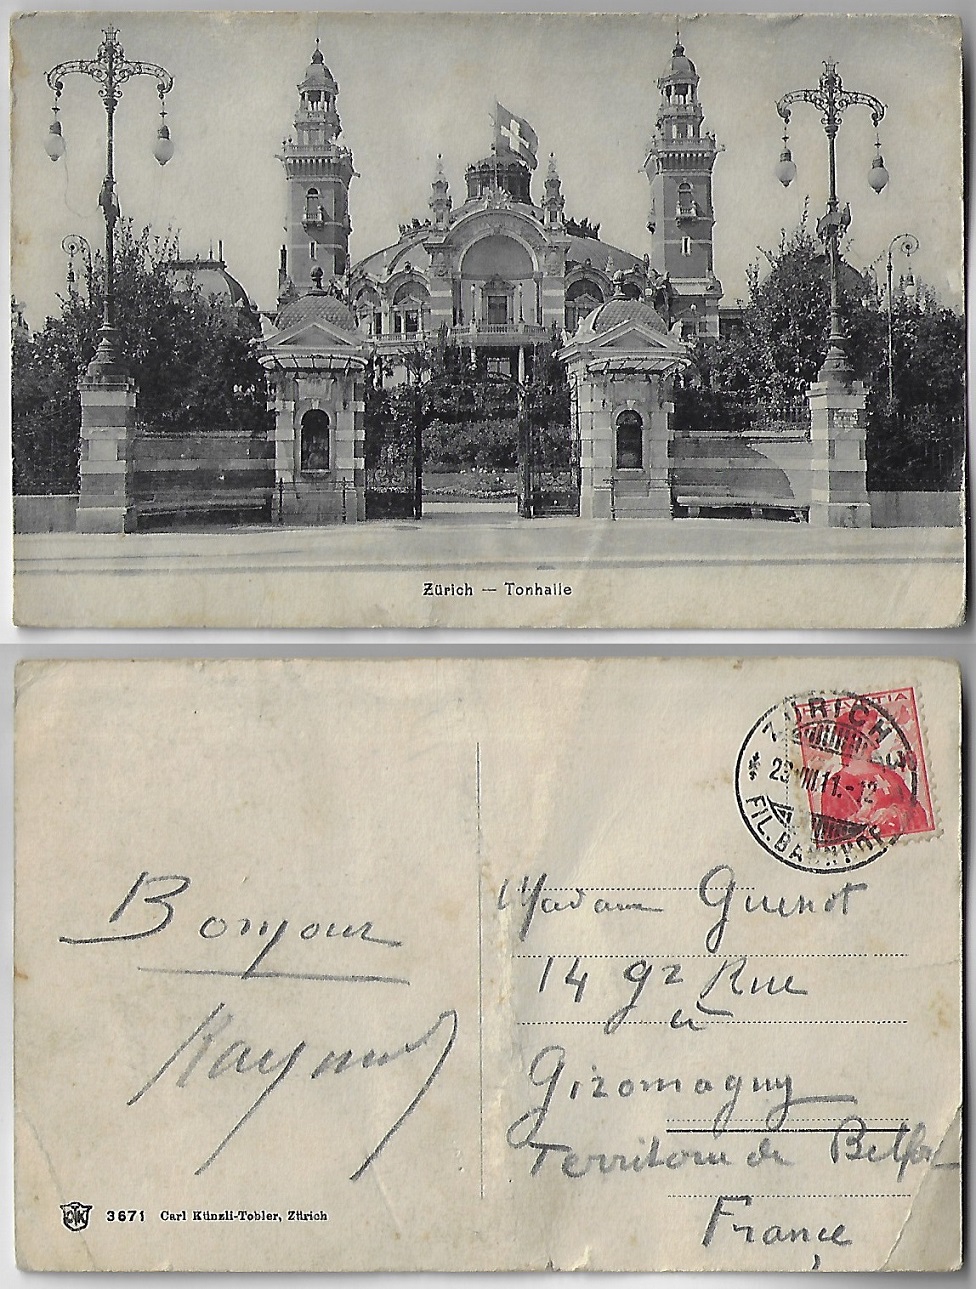 Zürich — Tonhalle
HELVETIA
ZÜRICH
23.VIII.11.-12
FIL. BAHNHOF
Bonjour
Raymond
Madame Guenot
14 Gde Rue
à
Giromagny
Territoire de Belfort
France
3671 Carl Künzli-Tobler, Zürich